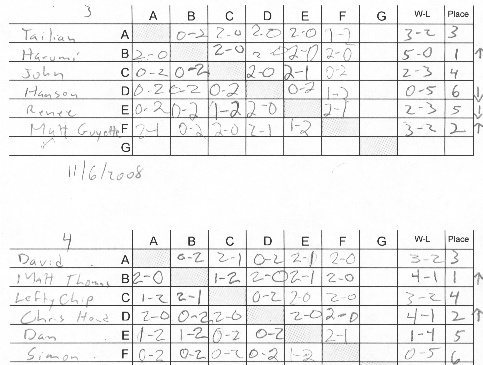 3 A B C D E F G W-L Place
Tailian A 0-2 2-0 2-0 2-0 1-2 3-2 3
Harumi B 2-0 2-0 2-0 2-0 2-0 5-0 1 ↑
John C 0-2 0-2 2-0 2-1 0-2 2-3 4
Hanson D 0-2 0-2 0-2 0-2 1-2 0-5 6 ↓
Renee E 0-2 0-2 1-2 2-0 2-1 2-3 5 ↓
Matt Guyette F 2-1 0-2 2-0 2-1 1-2 3-2 2 ↑
G
11/6/2008
4 A B C D E F G W-L Place
David A 0-2 2-1 0-2 2-1 2-0 3-2 3
Matt Thomas B 2-0 1-2 2-0 2-1 2-0 4-1 1 ↑
Lefty Chip C 1-2 2-1 0-2 2-0 2-0 3-2 4
Chris D 2-0 0-2 2-0 2-0 2-0 4-1 2 ↑
Dan E 1-2 1-2 0-2 0-2 2-1 1-4 5
Simon F 0-2 0-2 0-2 0-2 1-2 0-5 6